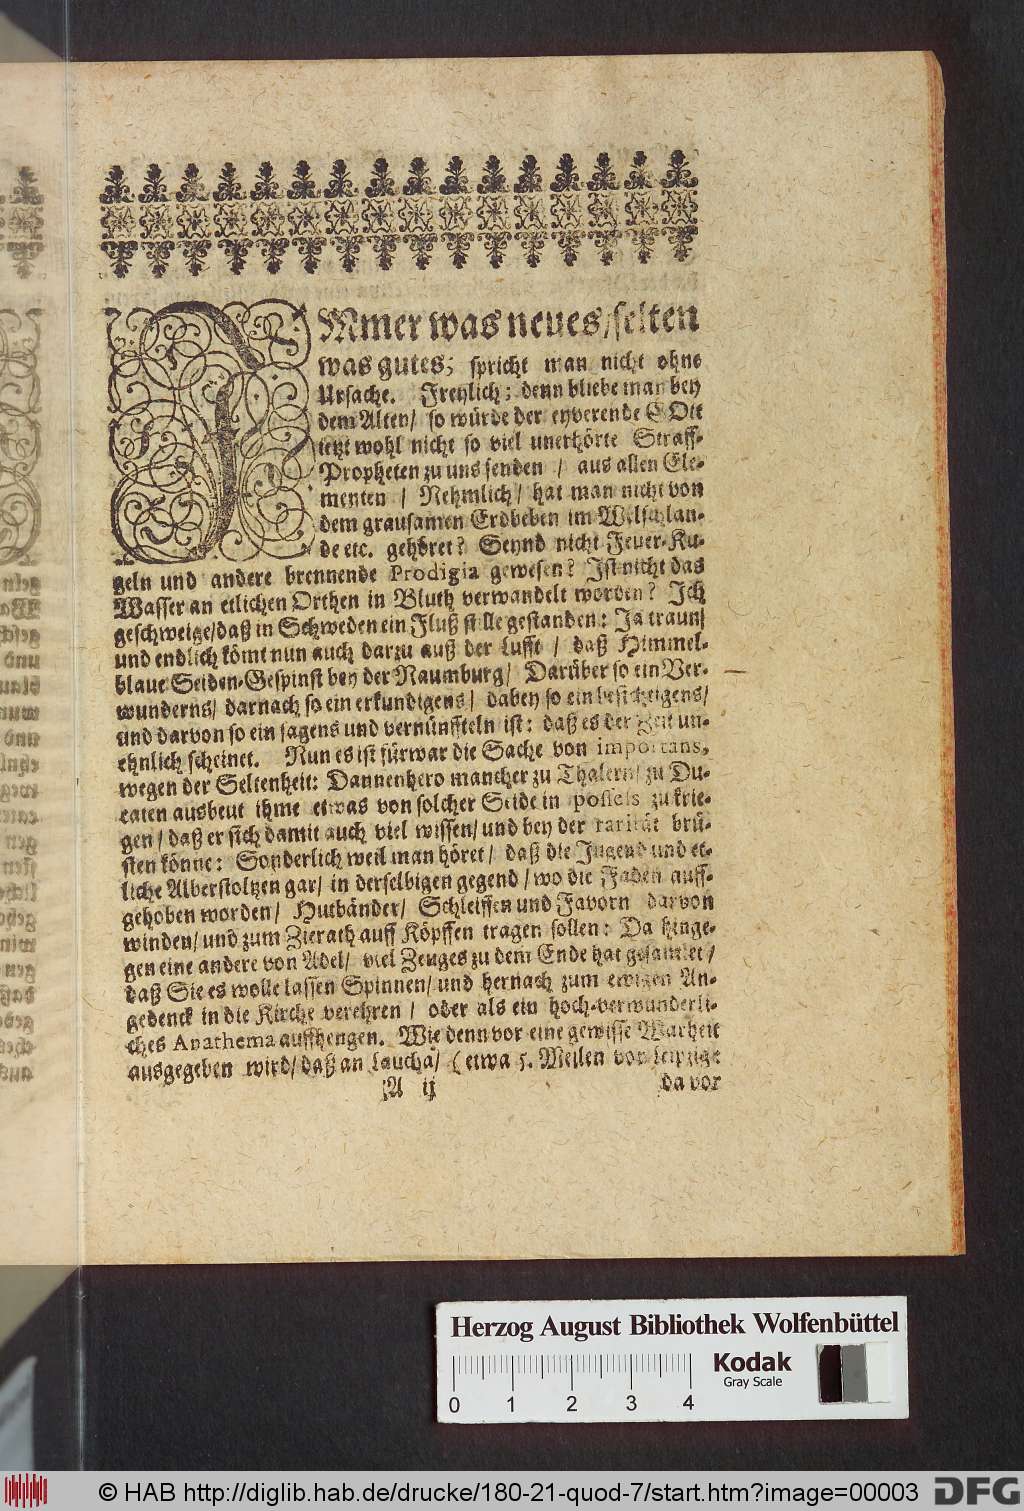 IMmer was neues/selten
was gutes; spricht man nicht ohne
Ursache. Freylich; denn bliebe man bey
dem Alten/ so würde der eyverende GOtt
ietzt wohl nicht so viel unerhörte Straff-
Propheten zu uns senden / aus allen Ele-
menten / Nehmlich/ hat man nicht von
dem grausamen Erdbeben im Welschlan-
de etc. gehöret? Seynd nicht Feuer-Ku-
geln und andere brennende Prodigia gewesen? Ist nicht das
Wasser an etlichen Orthen in Bluth verwandelt worden? Ich
geschweige/daß in Schweden ein Fluß stille gestanden: Ja traun/
und endlich kömt nun auch darzu auß der Lufft / daß Himmel-
blaue Seiden-Gespinst bey der Naumburg/ Darüber so ein Ver-
wunderns/ darnach so ein erkundigens/ dabey so ein besichtigens/
und darvon so ein sagens und vernünffteln ist: daß es der Zeit un-
ehnlich scheinet. Nun es ist fürwar die Sache von importans,
wegen der Seltenheit: Dannenhero mancher zu Thalern/ zu Du-
caten ausbeut ihme etwas von solcher Seide in possess zu krie-
gen/ daß er sich damit auch viel wissen/ und bey der rarität brü-
sten könne: Sonderlich weil man höret/ daß die Jugend und et-
liche Alberstoltzen gar/ in derselbigen gegend / wo die Faden auff-
gehoben worden/ Hutbänder/ Schleiffen und Favorn darvon
winden/ und zum Zierath auff Köpffen tragen sollen: Da hinge-
gen eine andere von Adel/ viel Zeuges zu dem Ende hat gesamlet/
daß Sie es wolle lassen Spinnen/ und hernach zum ewigen An-
gedenck in die Kirche verehren / oder als ein hoch-verwunderli-
ches Anathema auffhengen. Wie denn vor eine gewisse Warheit
ausgegeben wird/ daß an Laucha/ ( etwa 5. Meilen von Leipzig
A ij da vor
Herzog August Bibliothek Wolfenbüttel
Kodak
Gray Scale
0 1 2 3 4
© HAB http://diglib.hab.de/drucke/180-21-quod-7/start.htm?image=00003
DFG